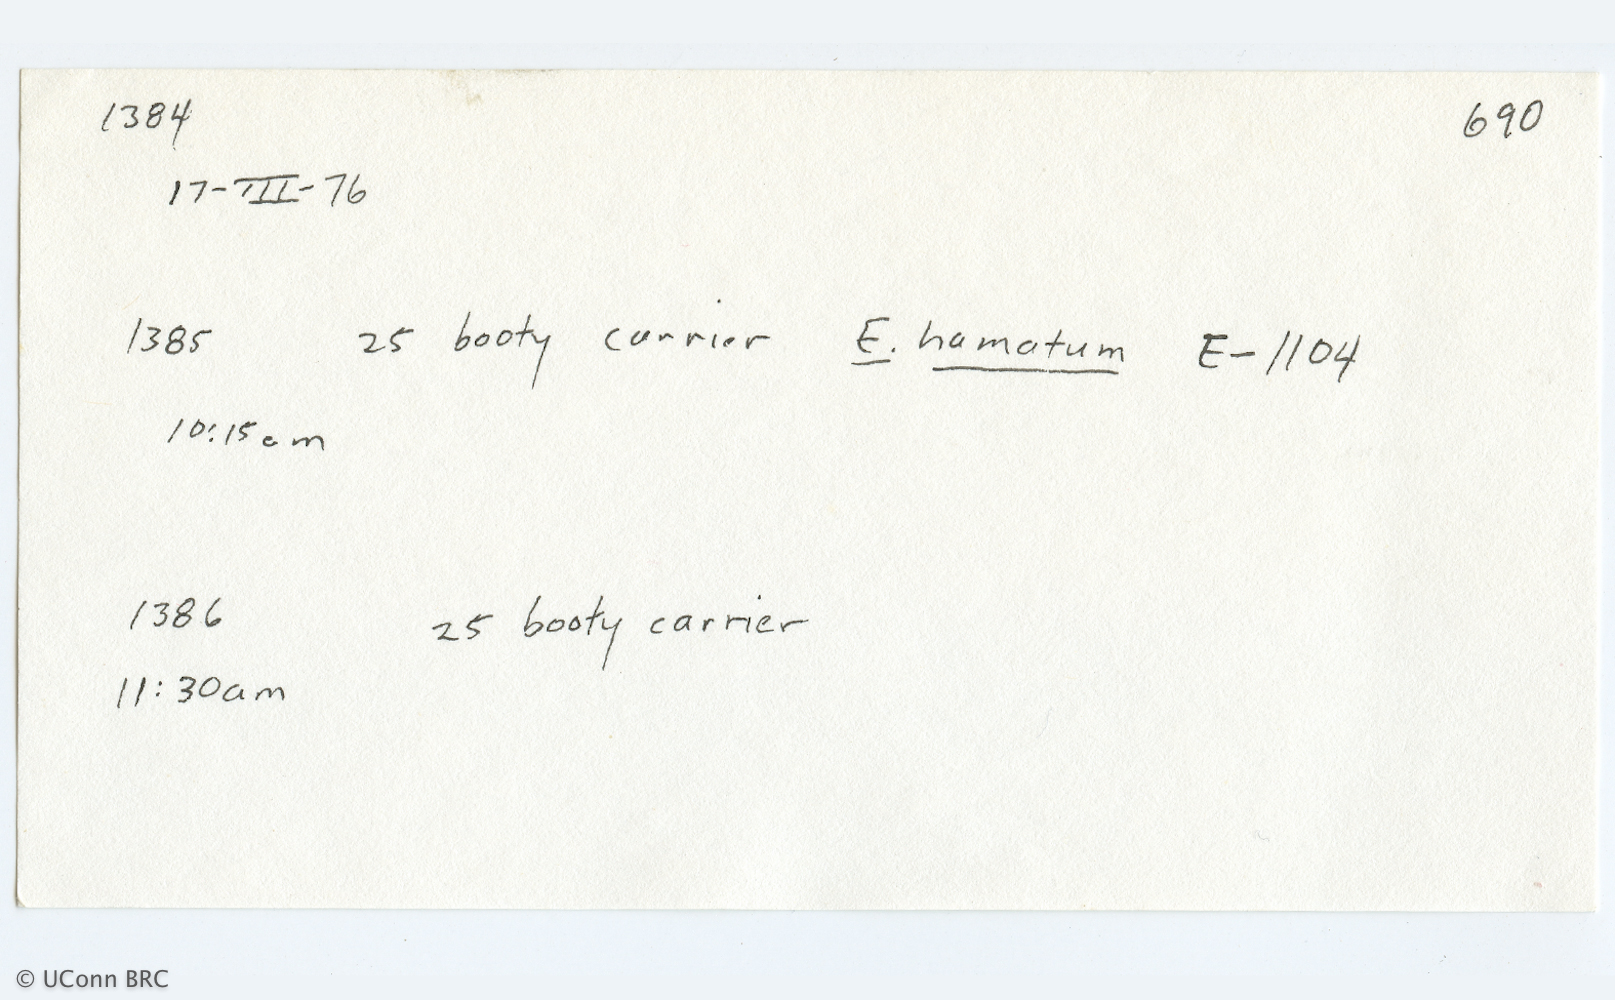 1384 690
17-III-76
1385 25 booty carrier E. hamatum E-1104
10:15am
1386 25 booty carrier
11:30am
© UConn BRC